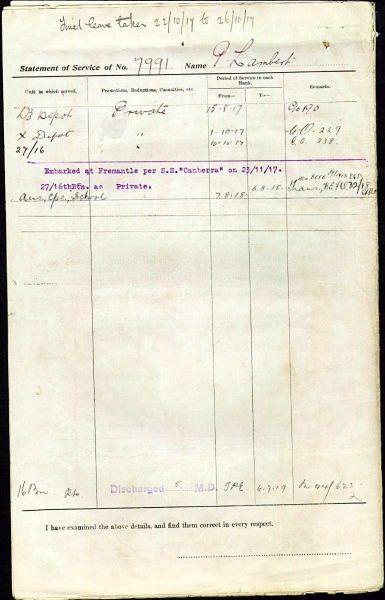 Final leave taken 22/10/17 to 26/10/17
Statement of Service of No. 7991 Name P Lambert
Period of Service in each Rank.
Unit in which served. Promotions, Reductions, Casualties, etc. From— To— Remarks.
D3 Depot Private 15-8-17
X Depot " 1-10-17 C.O. 229
27/16 " 10-10-17 C.O. 238.
Embarked at Fremantle per S.S."Canberra" on 23/11/17.
27/16thBtn. as Private. 6.8.18.
School 7.8.18.
16 Bn Discharged 5 M.D. TPE 6.7.19
I have examined the above details, and find them correct in every respect.